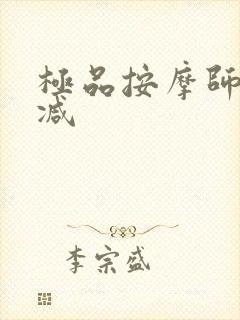 極品按摩師
减
李宗盛